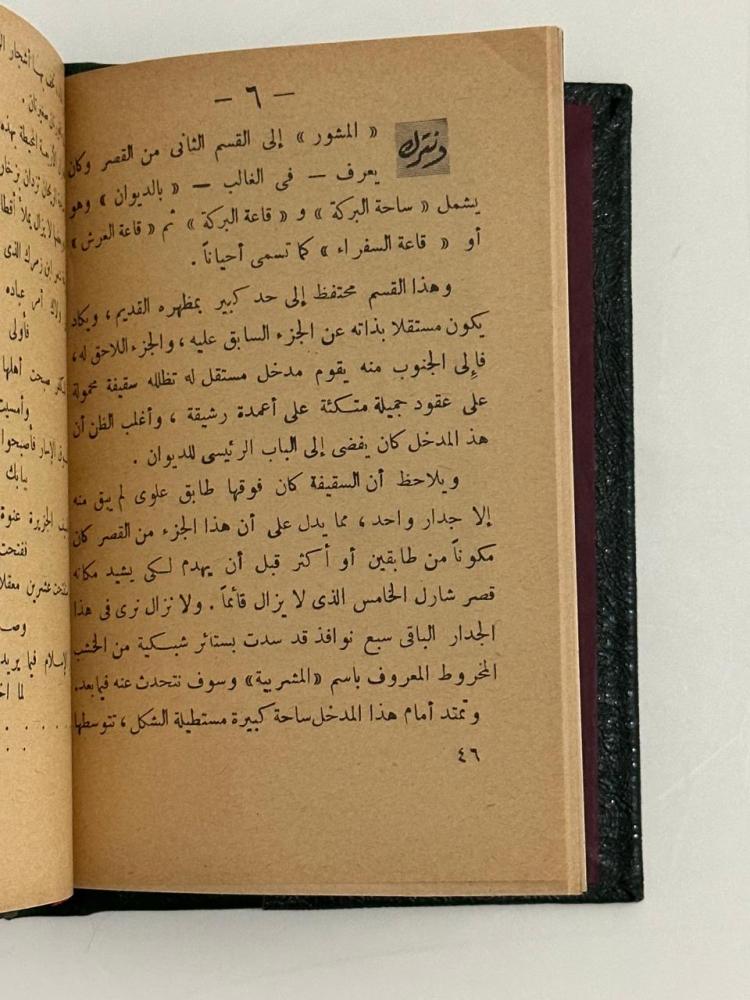 — ٦ —
ونترك « المشور » إلى القسم الثانى من القصر وكان
يعرف — فى الغالب — « بالديوان » وهو
يشمل « ساحة البركة » و « قاعة البركة » ثم « قاعة العرش »
أو « قاعة السفراء » كما تسمى أحياناً .
وهذا القسم محتفظ إلى حد كبير بمظهره القديم ، ويكاد
يكون مستقلا بذاته عن الجزء السابق عليه ، والجزء اللاحق له ،
فإلى الجنوب منه يقوم مدخل مستقل له تظلله سقيفة محمولة
على عقود جميلة متكئة على أعمدة رشيقة ، وأغلب الظن أن
هذ المدخل كان يفضى إلى الباب الرئيسى للديوان .
ويلاحظ أن السقيفة كان فوقها طابق علوى لم يبق منه
إلا جدار واحد ، مما يدل على أن هذا الجزء من القصر كان
مكوناً من طابقين أو أكثر قبل أن يهدم لكى يشيد مكانه
قصر شارل الخامس الذى لا يزال قائماً . ولا نزال نرى فى هذا
الجدار الباقى سبع نوافذ قد سدت بستائر شبكية من الخشب
المخروط المعروف باسم «المشربية» وسوف نتحدث عنه فيما بعد.
وتمتد أمام هذا المدخل ساحة كبيرة مستطيلة الشكل ، تتوسطها
٤٦
بها أشجار
المحيطة بهذه
تزدان
لا يزال يملأ
ابن زمرك الذى
أمر عباده
فأولى
صبحت أهلها
وأمسيت
الإسار فأصبحوا
ببابك
الجزيرة عنوة
ففتحت
عشرين معقلا
الإسلام فيما يريد
لما